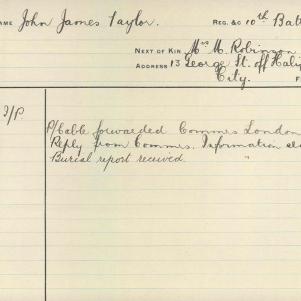 NAME John James Taylor. REG. &c 10th Bat
NEXT OF KIN Mrs M. Robinson
ADDRESS 13 George St. off Hali
City.
P/Cable forwarded Commrs London
Reply from Commrs. Information
Burial report received.